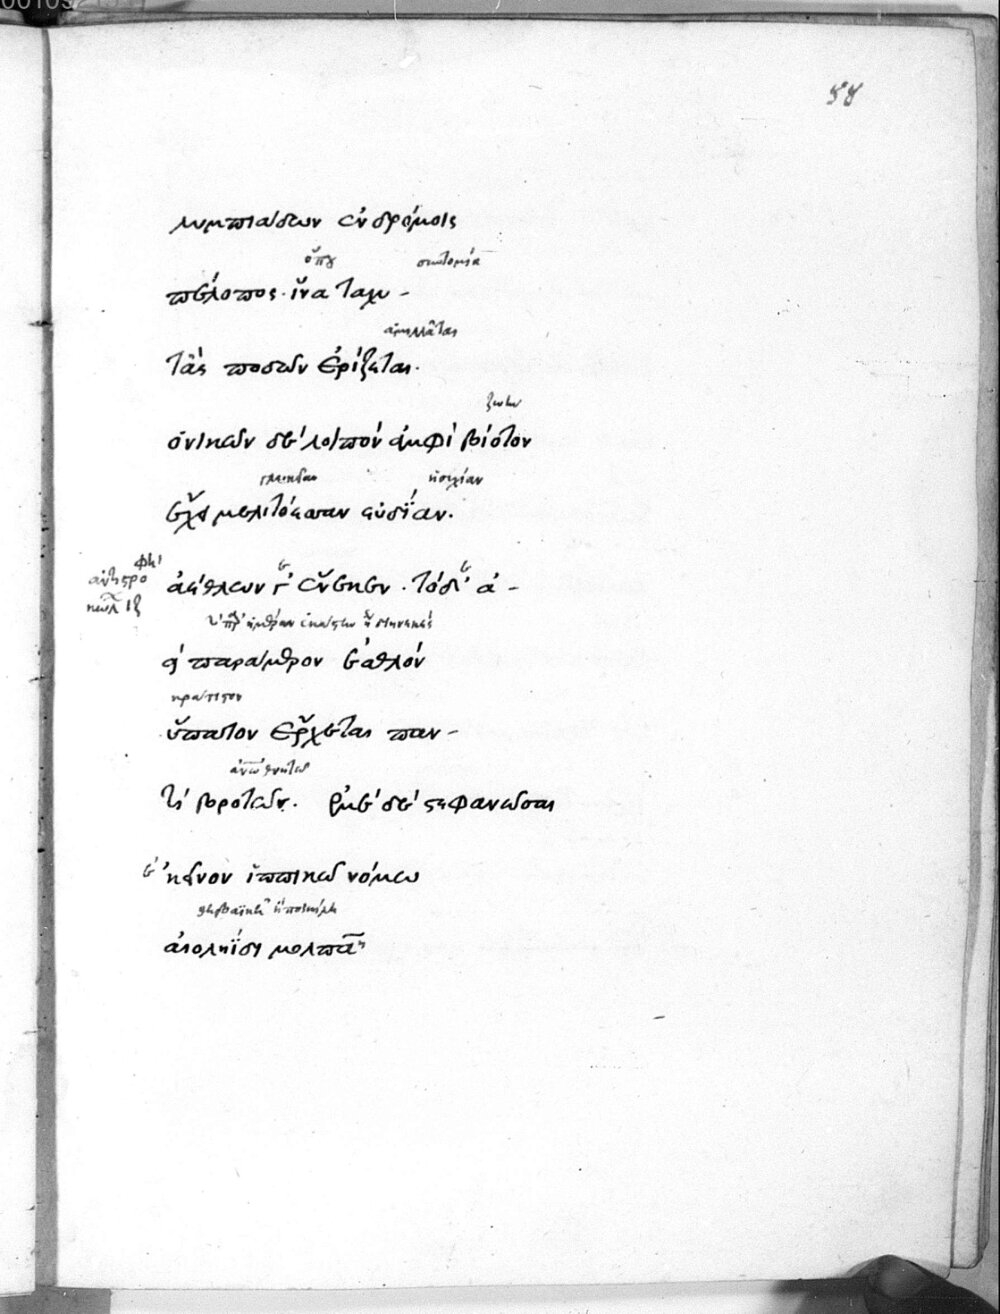 58
λυμπιάδων ἐν δρόμοις
ὅπου συντομία
πέλοπος· ἵνα ταχυ-
ἁμιλλᾶται
τὰς ποδῶν ἐρίζεται·
ζωὴν
ὁ νικῶν δὲ λοιπὸν ἀμφὶ βίοτον
ἡσυχίαν
ἔχει μελιτόεσσαν εὐδίαν.
ἀέθλων γ' ἕνεκεν· τὸ δ' ἀ-
εὶ παράμερον ἐσθλὸν
κράτιστον
ὕπατον ἔρχεται παν-
τὶ βροτῶν. ἐμὲ δὲ στεφανῶσαι
κεῖνον ἱππικῶ νόμω
αἰοληΐδι μολπᾶ